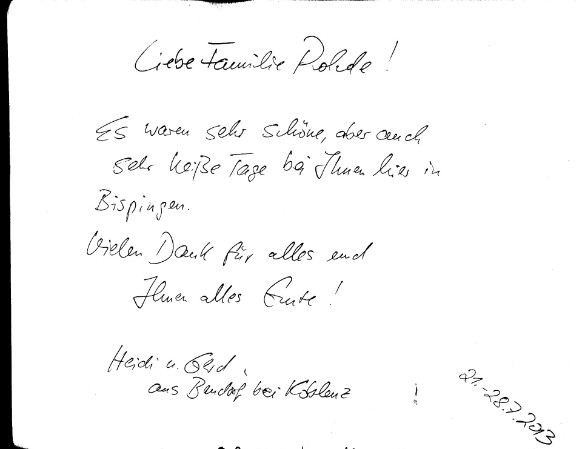 Liebe Familie Rohde!
Es waren sehr schöne, aber auch
sehr heiße Tage bei Ihnen hier in
Bispingen.
Vielen Dank für alles und
Ihnen alles Gute!
Heidi u. Gerd
aus Bendorf bei Koblenz !
21.-28.7.2013